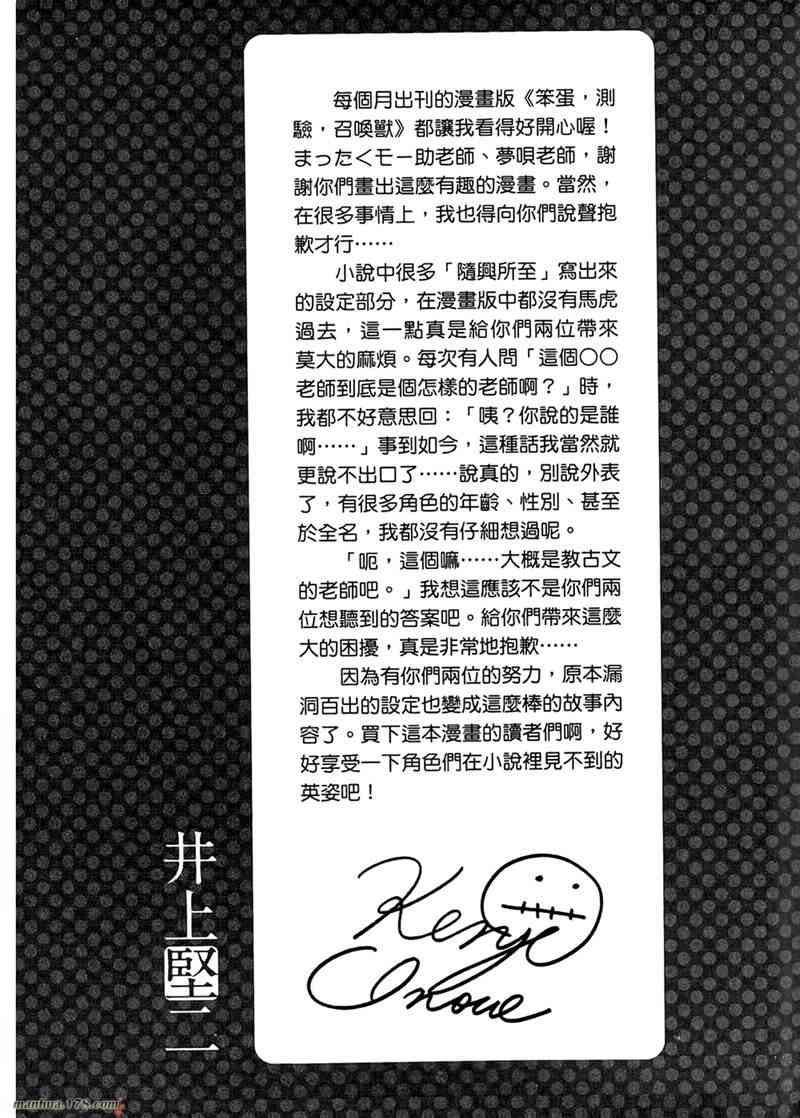 每個月出刊的漫畫版《笨蛋，測
驗，召喚獸》都讓我看得好開心喔！
まったくモー助老師、夢唄老師，謝
謝你們畫出這麼有趣的漫畫。當然，
在很多事情上，我也得向你們說聲抱
歉才行⋯⋯
小說中很多「隨興所至」寫出來
的設定部分，在漫畫版中都沒有馬虎
過去，這一點真是給你們兩位帶來
莫大的麻煩。每次有人問「這個○○
老師到底是個怎樣的老師啊？」時，
我都不好意思回：「咦？你說的是誰
啊⋯⋯」事到如今，這種話我當然就
更說不出口了⋯⋯說真的，別說外表
了，有很多角色的年齡、性別、甚至
於全名，我都沒有仔細想過呢。
「呃，這個嘛⋯⋯大概是教古文
的老師吧。」我想這應該不是你們兩
位想聽到的答案吧。給你們帶來這麼
大的困擾，真是非常地抱歉⋯⋯
因為有你們兩位的努力，原本漏
洞百出的設定也變成這麼棒的故事內
容了。買下這本漫畫的讀者們啊，好
好享受一下角色們在小說裡見不到的
英姿吧！
Kenji
Inoue
井上堅二
manhua.178.com